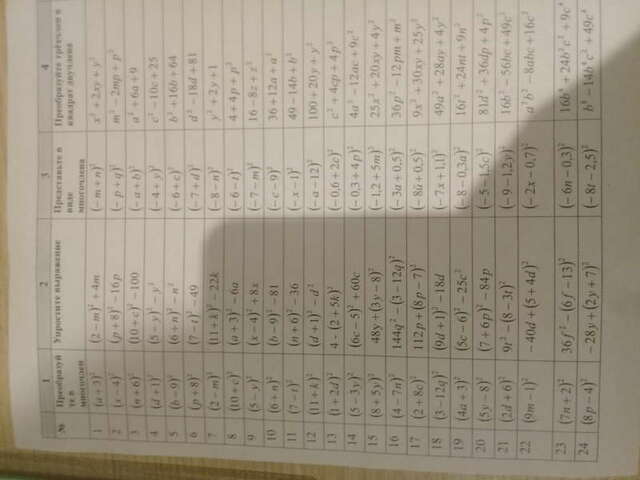 1 2 3 4
№ Преобразуйте в многочлен Упростите выражение Представьте в виде многочлена Преобразуйте трёхчлен в квадрат двучлена
1 (a+3)² (2−m)²+4m (−m+n)² x²+2xy+y²
2 (x−4)² (p+8)²−16p (−p+q)² m²−2mp+p²
3 (n+6)² (10+c)²−100 (−a+b)² a²+6a+9
4 (d+1)² (5−y)²−y² (−4+y)² c²−10c+25
5 (b−9)² (6+n)²−n² (−6+c)² b²+16b+64
6 (p+8)² (7−t)²−49 (−7+d)² d²−18d+81
7 (2−m)² (11+k)²−22k (−8−n)² y²+2y+1
8 (10+c)² (a+3)²−6a (−6−t)² 4+4p+p²
9 (5−y)² (x−4)²+8x (−7−m)² 16−8z+z²
10 (6+n)² (b−9)²−81 (−c−9)² 36+12a+a²
11 (7−t)² (n+6)²−36 (−x−1)² 49−14b+b²
12 (11+k)² (d+1)²−d² (−a−12)² 100+20y+y²
13 (1+2d)² 4-(2+5k)² (−0,6+2c)² c²+4cp+4p²
14 (5−3y)² (6c−5)²+60c (−0,3+4p)² 4a²−12ac+9c²
15 (8+5y)² 48y+(3y−8)² (−1,2+5m)² 25x²+20xy+4y²
16 (4−7n)² 144q²−(3−12q)² (−3a+0,5)² 36p²−12pm+m²
17 (2+8c)² 112p+(8p−7)² (−8й+0,5)² 9x²+30xy+25y²
18 (3−12q)² (9d+1)²−18d (−7x+1,1)² 49a²+28ay+4y²
19 (4a+3)² (5c−6)²−25c² (−8−0,3a)² 16t²+24nt+9n²
20 (5y−8)² (7+6p)²−84p (−5−1,5c)² 81d²+36dp+4p²
21 (2d+6)² 9t²−(8−3t)² (−9−1,2y)² 16b²−56bc+49c²
22 (9m−1)² −40d+(5+4d)² (−2x−0,7)² a²b²−8abc+16c²
23 (7n+2)² 36f²−(6f−13)² (−6n−0,3)² 16b⁴+24b²c²+9c⁴
24 (8p−4)² −28y+(2y+7)² (−8t−2,5)² b⁸−14b⁴c²+49c⁴